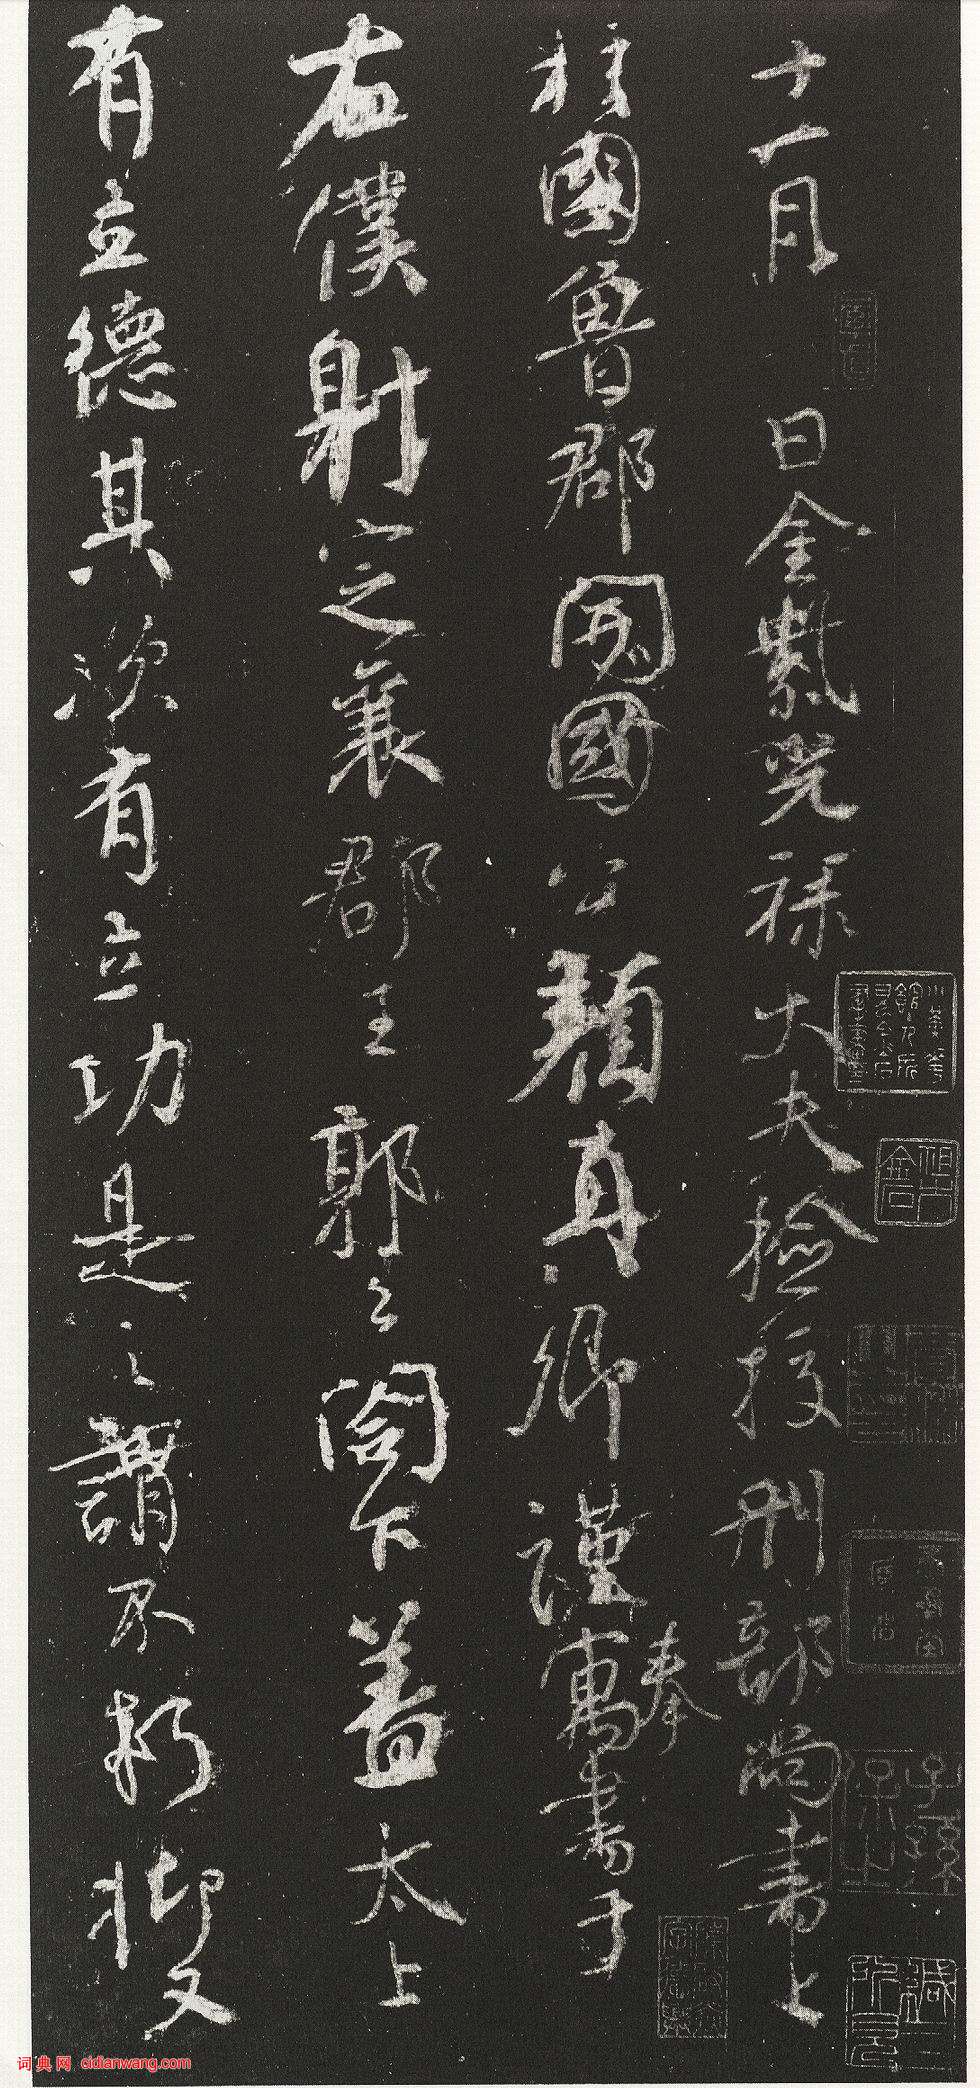 十一月 日金紫光祿大夫檢挍刑部尚書上
柱國魯郡開國公顏真卿謹奉寓書于
右僕射定襄郡王郭公閤下蓋太上
有立德其次有立功是之謂不朽抑又
子孫保之
詞典網 cidianwang.com